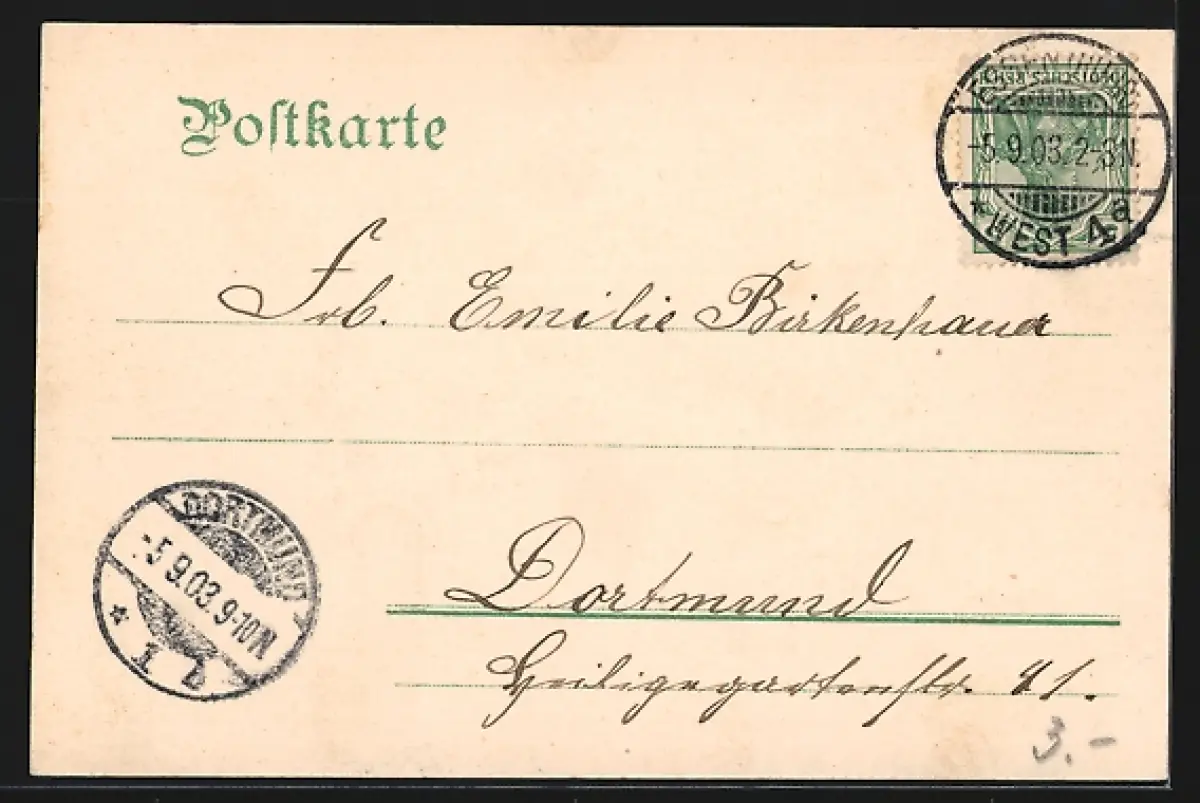 Postkarte
-5.9.03. 2-3N.
* WEST 4a
Frl. Emilie Birkenhauer
DORTMUND
-5.9.03. 9-10N
* 1 z
Dortmund
Heiligegartenstr. 41.
3.-